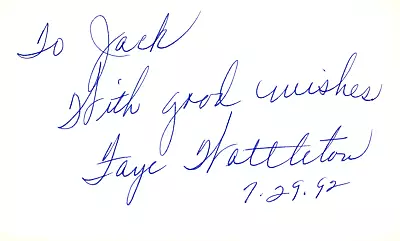 To Jack
With good wishes
Faye Wattleton
7.29.92